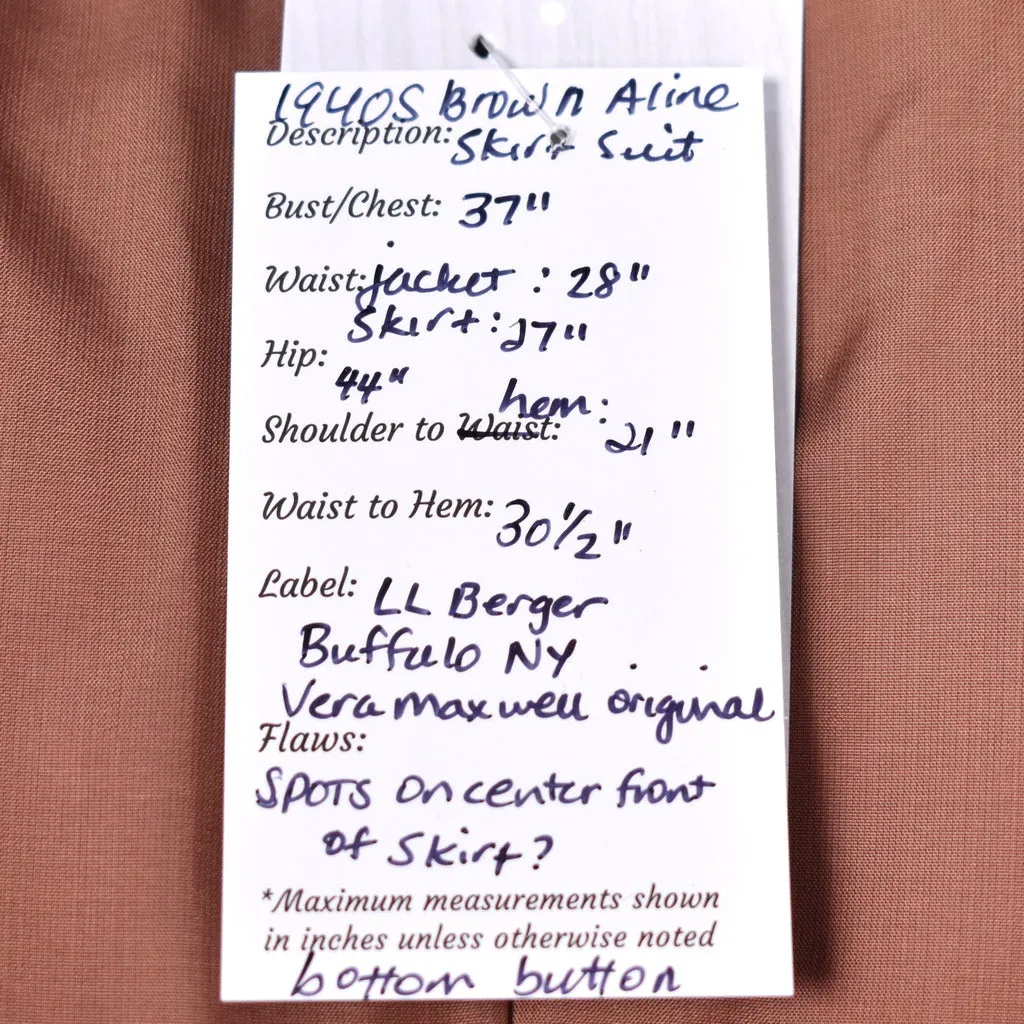 1940S Brown Aline
Description: Skirt Suit
Bust/Chest: 37"
Waist: jacket : 28"
Skirt: 27"
Hip:
44"
hem:
Shoulder to Waist: 21"
Waist to Hem: 30 1/2"
Label: LL Berger
Buffalo NY
Vera maxwell original
Flaws:
SPOTS On center front
of Skirt?
*Maximum measurements shown
in inches unless otherwise noted
bottom button